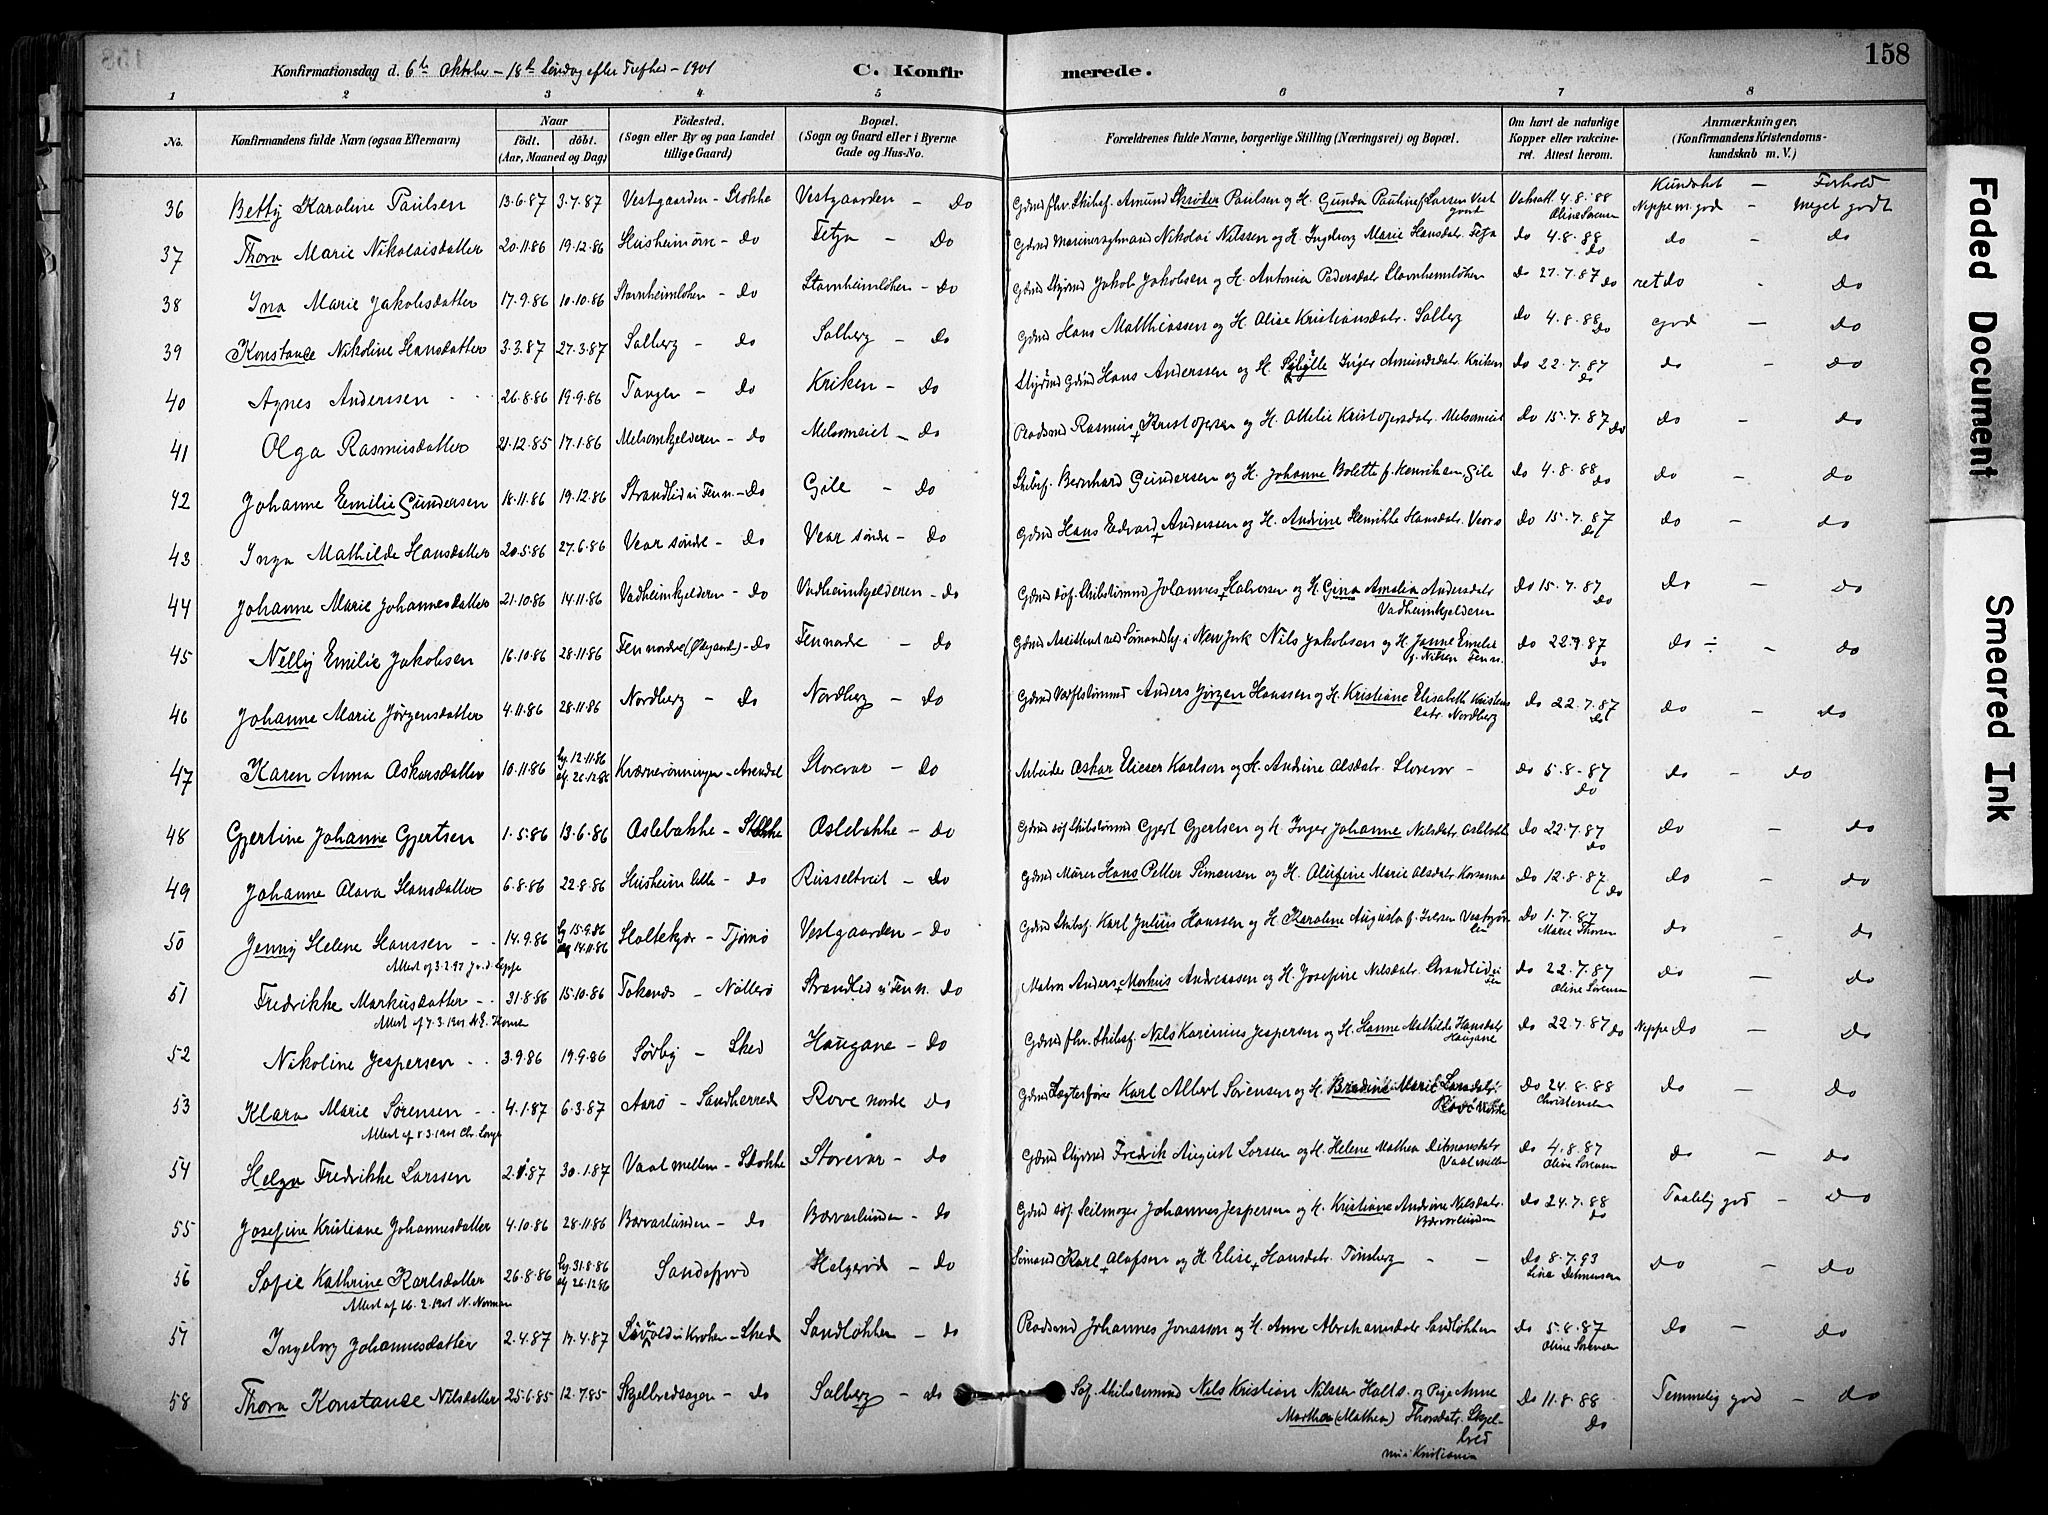 158
Konfirmationsdag d. 6te Oktober - 18de Søndag efter Trefhed - 1901 C. Konfir merede.
1 2 3 4 5 6 7 8
No. Konfirmandens fulde Navn (ogsaa Efternavn) Naar født. døbt. (Aar, Maaned og Dag) Fødested. (Sogn eller By og paa Landet tillige Gaard) Bopæl. (Sogn og Gaard eller i Byerne Gade og Hus-No. Forældrenes fulde Navne, borgerlige Stilling (Næringsvei) og Bopæl. Om havt de naturlige Kopper eller vakcineret. Attest herom. Anmærkninger. (Konfirmandens Kristendomskundskab m. V.)
Kundskab - Forhold
36 Betty Karoline Paulsen 13.6.87 3.7.87 Vestgaarden - Stokke Vestgaarden - do Gdmd fhv. Skibsf. Amund Skrøder Paulsen og H. Gunda Pauline f. Larsen 4.8.88 Oline Sørensen Neppe m. god - meget godt
37 Thora Marie Nikolaisdatter 20.11.86 19.12.86 Husheimøre - do Fetja - do Nikolai Nilssen og H. Ingeborg Marie Hansdatr. Fetja do 4.8.88 do do - do
38 Ina Marie Jakobsdatter 17.9.86 10.10.86 Starnheimløken - do Starnheimløken - do Gdmd Styrmd Jakob Jakobsen og H. Antonia Pedersdatr Starnheimløken do 27.7.87 do ret do - do
39 Konstance Nikoline Hansdatter 3.3.87 27.3.87 Solberg - do Solberg - do Gdmd Hans Matthiassen og H. Alise Kristiansdatr. Solberg do 4.8.88 do god - do
40 Agnes Anderssen 26.8.86 19.9.86 Tangen - do Kriken - do Styrmd Gdmd Hans Anderssen og H. Sybylle Inger Amundsdatr. Kriken do 22.7.87 do do - do
41 Olga Rasmusdatter 21.12.85 17.1.86 Melsomkjelderen - do Melsomeiet - do Pladsmd Rasmus Kristofersen og H. Attelie Kristofersdatr. Melsomeiet do 15.7.87 do do - do
42 Johanne Emilie Gundersen 18.11.86 19.12.86 Strandlid u Fen n. - do Gile - do Skibsf. Bernhard Gundersen og H. Johanne Bolette f. Henriksen Gile do 4.8.88 do do - do
43 Inga Mathilde Hansdatter 20.5.86 27.6.86 Vear søndre - do Vear søndre - do Gdmd Hans Edvard Anderssen og H. Andrine Henrikke Hansdatr. Vear s do 15.7.87 do do - do
44 Johanne Marie Johannesdatter 21.10.86 14.11.86 Vadheimkjelderen - do Vadheimkjelderen - do Gdmd søf. Skibstømmd Johannes Halversen og H. Gina Amalia Andersdatr Vadheimkjelderen do 15.7.87 do do - do
45 Nelly Emilie Jakobsen 16.10.86 28.11.86 Fen nordre (Østgaard) - do Fen nordre - do Gdmd Assistent ved Sømandby. i New York Nils Jakobsen og H. Janne Emilie f. Nilsen Fen n. do 22.9.87 do do ÷ - do
46 Johanne Marie Jørgensdatter 4.11.86 28.11.86 Nordberg - do Nordberg - do Gdmd Værftstømmd Anders Jørgen Hanssen og H. Kristiane Elisabeth Kristensdatr. Nordberg do 22.7.87 do do - do
47 Karen Anna Oskarsdatter 10.11.86 hj. 12.11.86 af 26.12.86 Kværnerønningen - Arendal Storevar - do Arbeider Oskar Elieser Karlsen og H. Andrine Olsdatr. Storevar - do 5.8.87 do do - do
48 Gjertine Johanne Gjertsen 1.5.86 13.6.86 Oslebakke - Stokke Oslebakke - do Gdmd søf Skibstømmd Gjert Gjertsen og H. Inger Johanne Nilsdatr Oslebakke do 22.7.87 do do - do
49 Johanne Olava Hansdatter 6.8.86 22.8.86 Husheim lille - do Russeltveit - do Gdmd Murer Hans Petter Simonsen og H. Marie Olsdatr do 12.8.87 do do - do
50 Jenny Helene Hanssen - - 14.9.86 hj 15.9.86 14.11.86 Holtekjær - Tjømø Vestgaarden - do Gdmd Skibsf. Karl Julius Hanssen og H. Karoline Augusta f. Vestgaarden do 1.7.87 Marie Thorsen do - do
Attest af 3.2.97
51 Fredrikke Markusdatter - - 31.8.86 15.10.86 Tokenæs - Nøtterø Strandlid u Fen n. do Matros Anders Markus Andreassen og H. Josefine Nilsdatr. Strandlid u Fen do 22.7.87 Oline Sørensen do - do
Attest af 7.3.1901
52 Nikoline Jespersen - - 3.9.86 19.9.86 Sørby - Sked Haugane - do Gdmd fhv. Skibsf. Nils Karenius Jespersen og H. Hanne Mathilde Hansdatr Haugane do 22.7.87 do Neppe do - do
53 Klara Marie Sørensen - - 4.1.87 6.3.87 Aarø - Sandherred Rove nordre do Gdmd Lægterfører Karl Albert Sørensen og H. Bredine Marie Larsdatr. do 24.8.88 Christensen do - do
Attest af 8.3.1901
54 Helga Fredrikke Larssen 2.1.87 30.1.87 Vaal mellem - Stokke Storevar - do Gdmd Styrmd Fredrik August Larssen og H. Helene Mathea Ditmansdatr Vaal mellem do 4.8.87 Oline Sørensen do - do
55 Josefine Kristiane Johannesdatter 4.10.86 28.11.86 Borvarlunden - do Bærvarlunden - do Gdmd søf. Seilmager Johannes Jespersen og H. Kristiane Andrine Nilsdatr. Bærvarlunden do 24.7.88 do Taalelig god - do
56 Sofie Kathrine Karlsdatter 26.8.86 hj. 31.8.86 af 26.12.86 Sandefjord Helgerød - do Sømand Karl Olafsen og H Elise Hansdatr. Tønsberg - - do 8.7.93 Lina Ditmansen do - do
Attest af 16.2.1901 N. Norman
57 Ingeborg Johannesdatter 2.4.87 17.4.87 u Kroken - Sked Sandløkken - do Pladsmd Johannes Jonassøn og H. Anne Abrahamsdatr Sandløkken do 5.8.87 Oline Sørensen do - do
58 Thora Konstance Nilsdatter 25.6.85 12.7.85 Skjelbredsagen - do Solberg - do Søf. Skibstømmd Nils Kristian Nilssen Halts. og Pige Anne Marthea (Mathea) Thorsdatr. Skjelbred nu i Kristiania do 11.8.88 do Temmelig god - do
Faded Document
Smeared Ink